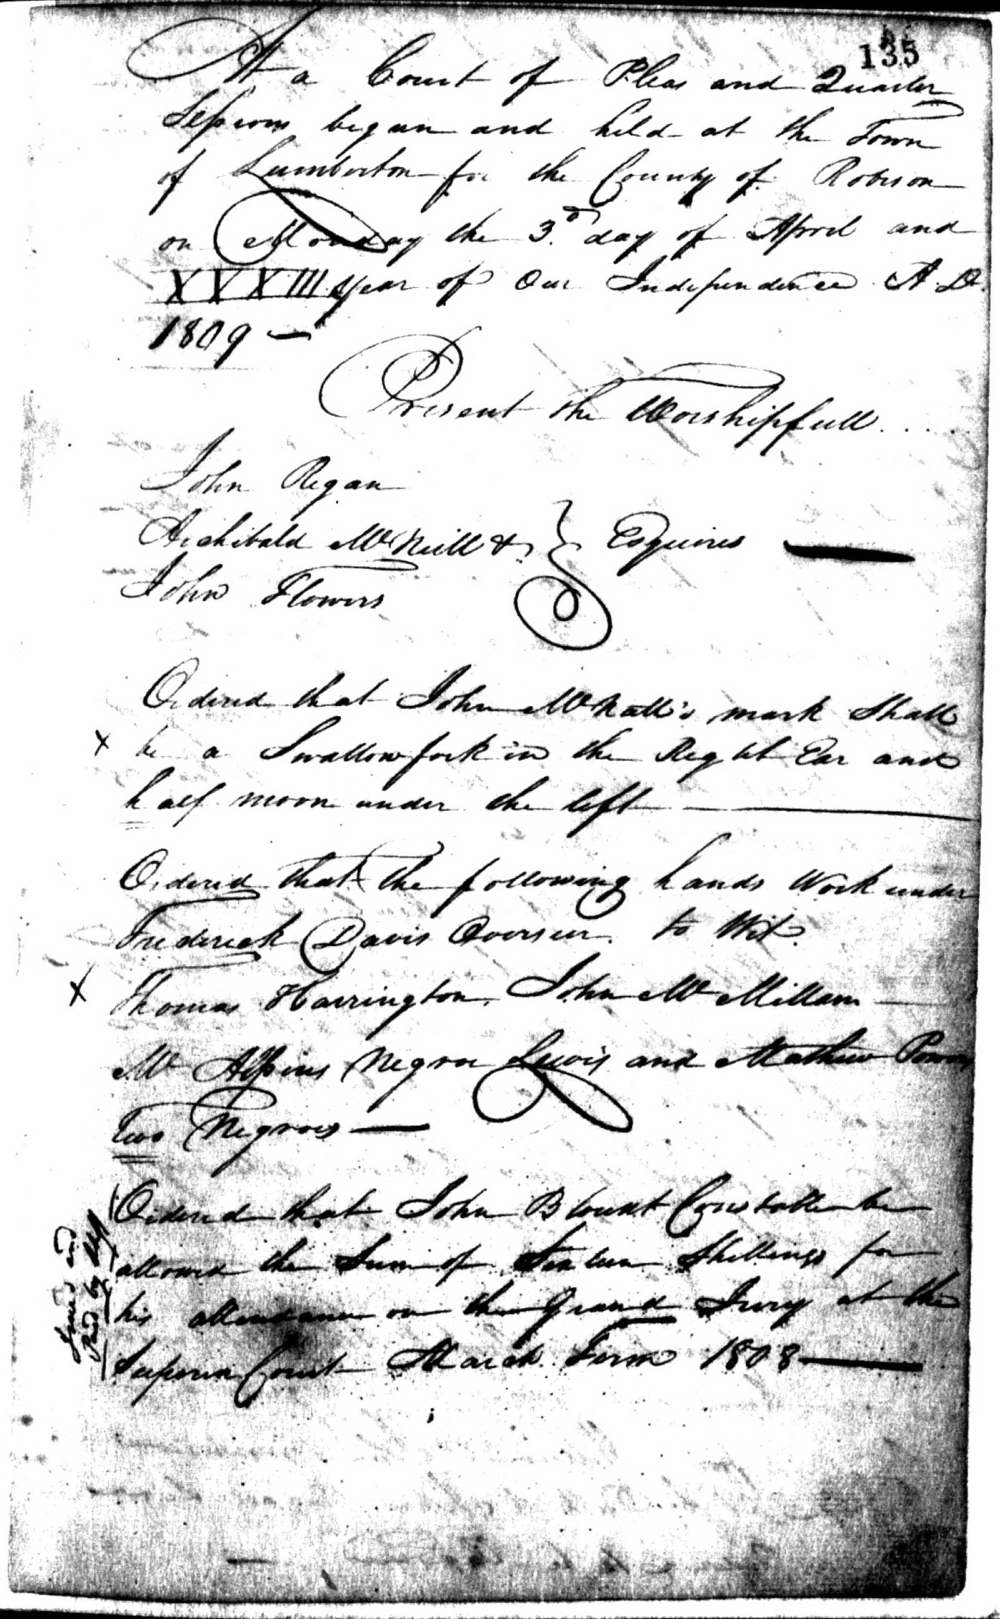 135
At a Court of Pleas and Quarter
Sessions began and held at the Town
of Lumberton for the County of Robeson
on Monday the 3d. day of April and
XXXIII year of Our Independence A.D.
1809 —
Present the Worshipfull ....
John Regan
Archibald McNeill & } Esquires —
John Flowers
Ordered that John McNatt's mark Shall
x be a Swallowfork in the Reght Ear and
half moon under the left —
Ordered that the following hands Work under
Frederick Davis Overseer. to Wit.
x Thomas Harrington, John McMillam —
Mc Alpins Negroe Lewis and Mathew Powers
two Negroes —
Ordered that John Blount Constable be
allowed the Sum of Shillings for
his attendance on the Grand Jury at the
Superior Court March Term 1808 —